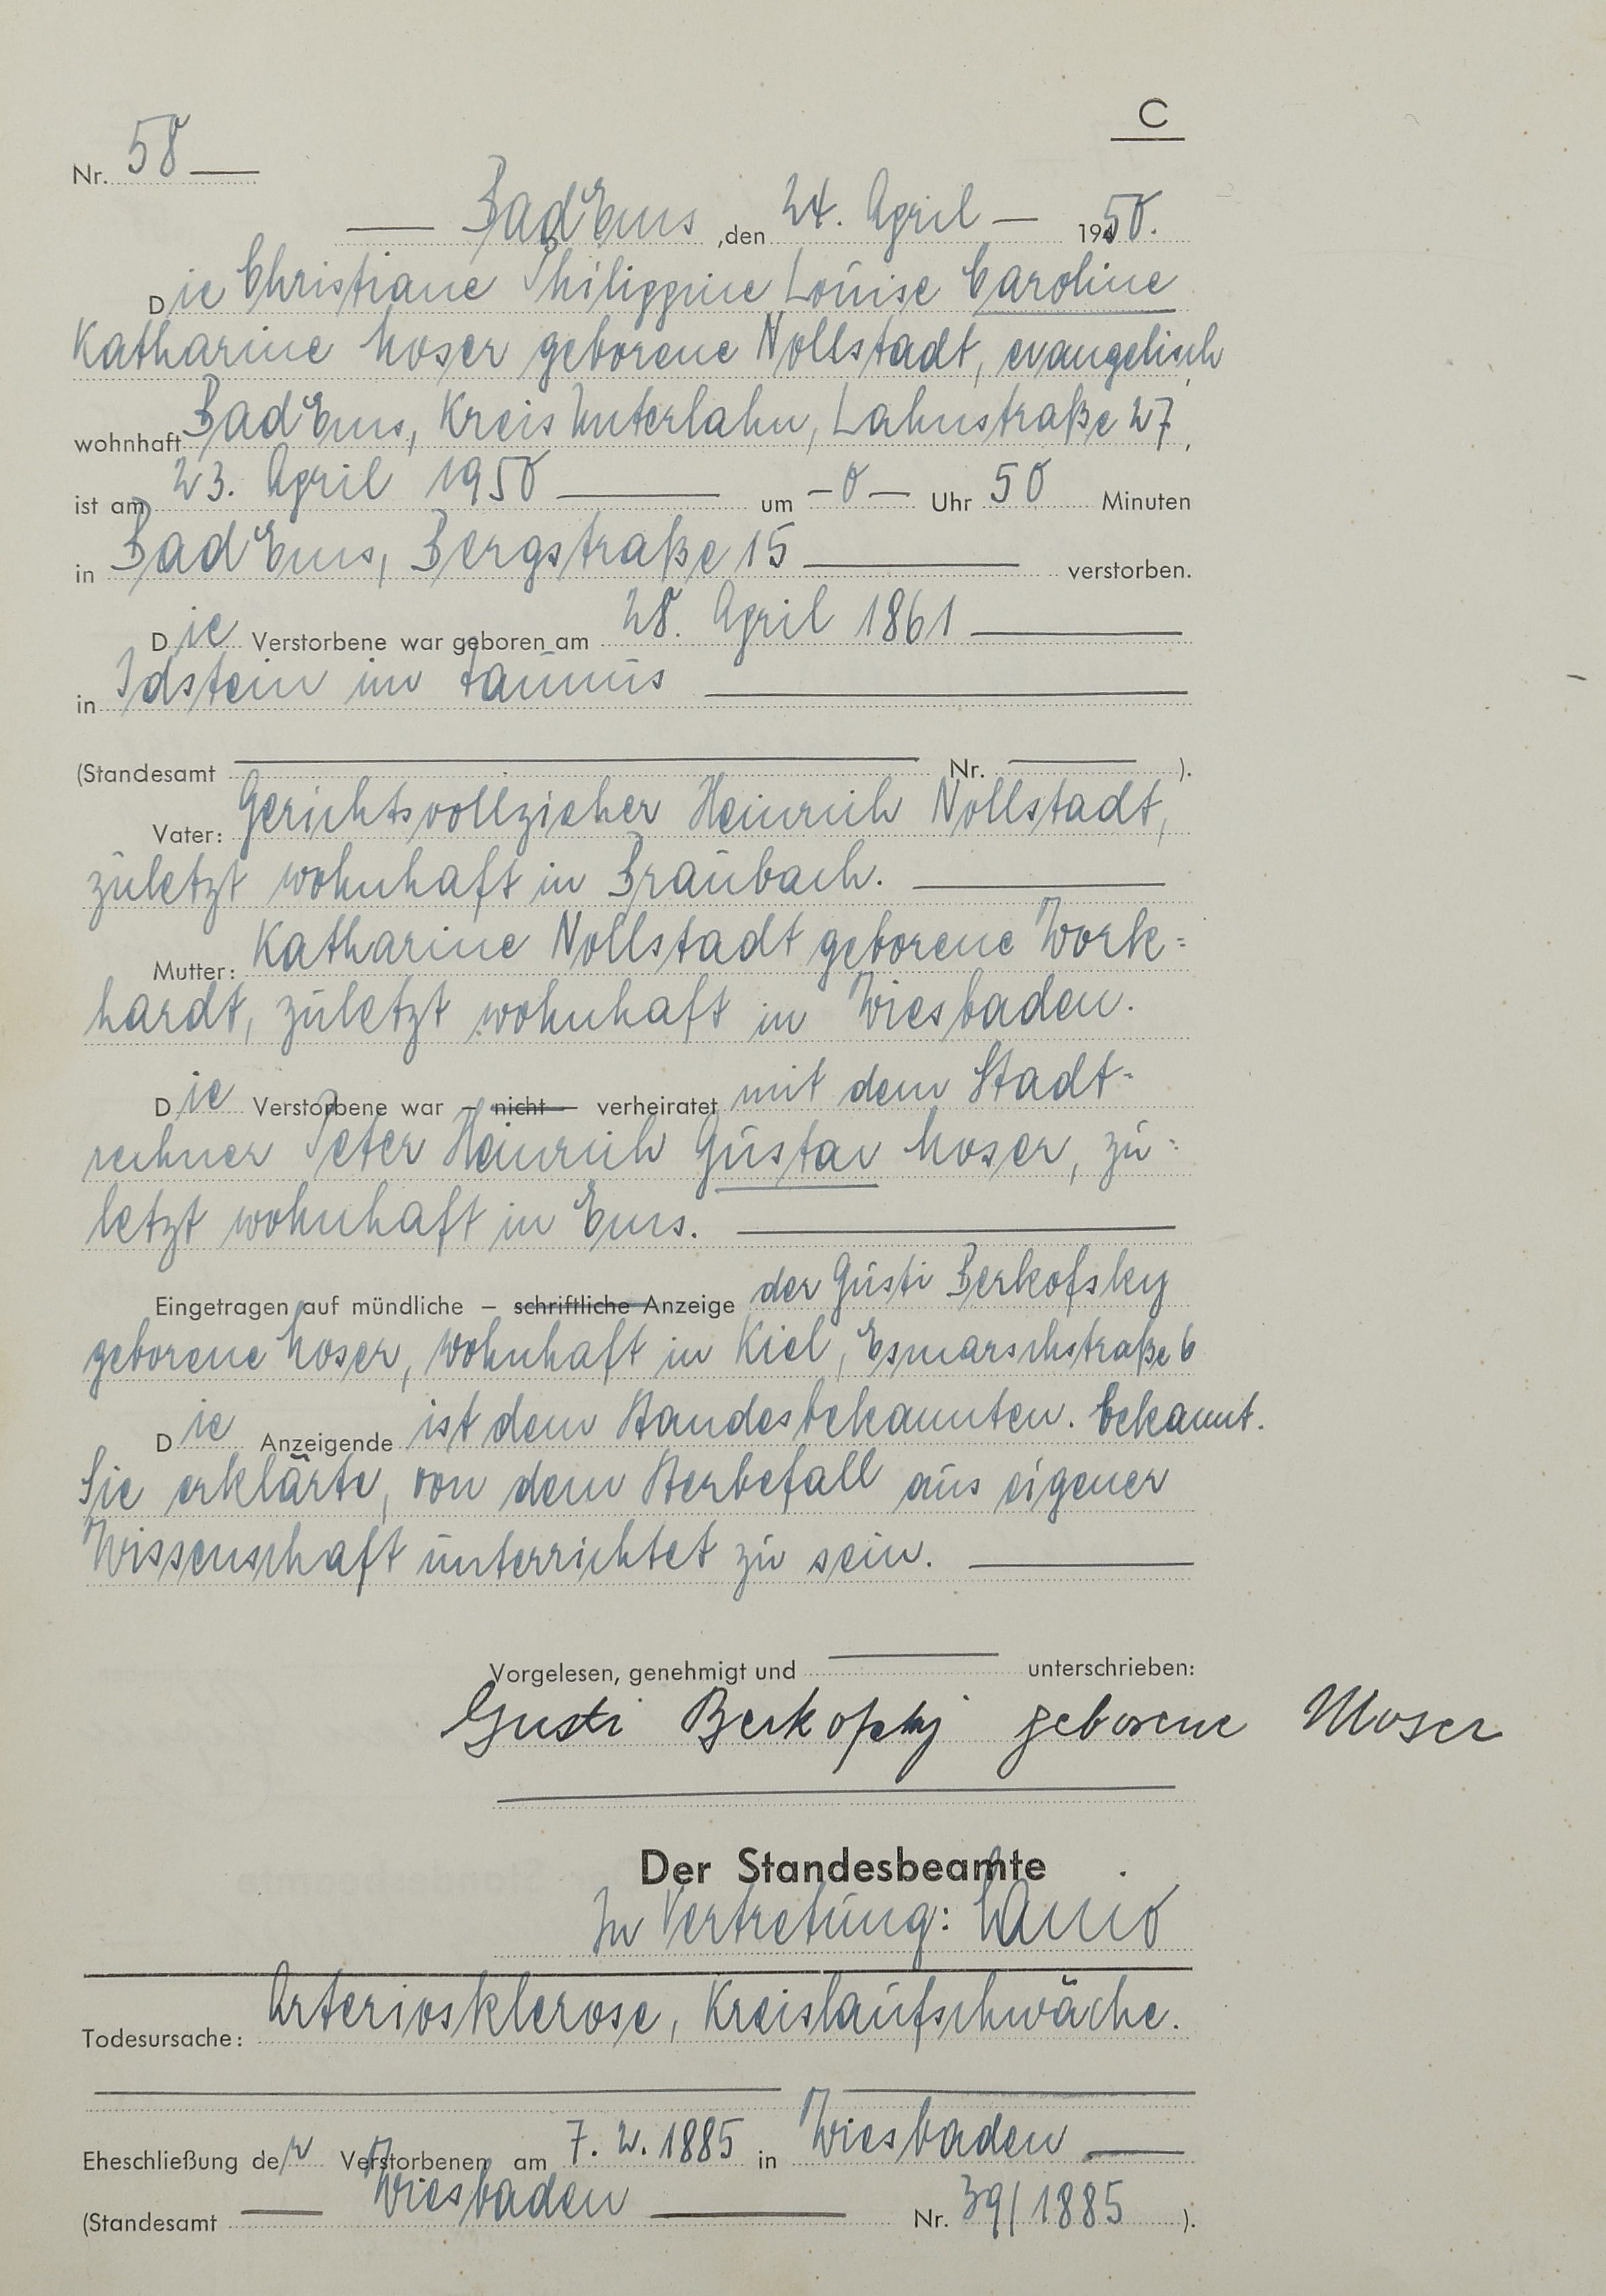 C
Nr. 58
Bad Ems, den 24. April 1950.
Die Christiane Philippine Louise Caroline
Katharine Moser geborene Nollstadt, evangelisch,
wohnhaft Bad Ems, Kreis Unterlahn, Lahnstraße 27,
ist am 23. April 1950 um - 0 - Uhr 50 Minuten
in Bad Ems, Bergstraße 15 verstorben.
Die Verstorbene war geboren am 28. April 1861
in Idstein im Taunus
(Standesamt Nr. ).
Vater: Gerichtsvollzieher Heinrich Nollstadt,
zuletzt wohnhaft in Braubach.
Mutter: Katharine Nollstadt geborene Work=
hardt, zuletzt wohnhaft in Wiesbaden.
Die Verstorbene war – nicht – verheiratet mit dem Stadt=
rechner Peter Heinrich Gustav Moser, zu=
letzt wohnhaft in Ems.
Eingetragen auf mündliche – schriftliche Anzeige der Gusti Berkofsky
geborene Moser, wohnhaft in Kiel, Esmarschstraße 6
Die Anzeigende ist dem Standesbekannten. bekannt.
Sie erklärte, von dem Sterbefall aus eigener
Wissenschaft unterrichtet zu sein.
Vorgelesen, genehmigt und unterschrieben:
Gusti Berkofsky geborene Moser
Der Standesbeamte
In Vertretung:
Todesursache: Arteriosklerose, Kreislaufschwäche.
Eheschließung der Verstorbenen am 7. 2. 1885 in Wiesbaden
(Standesamt Wiesbaden Nr. 39/1885 ).